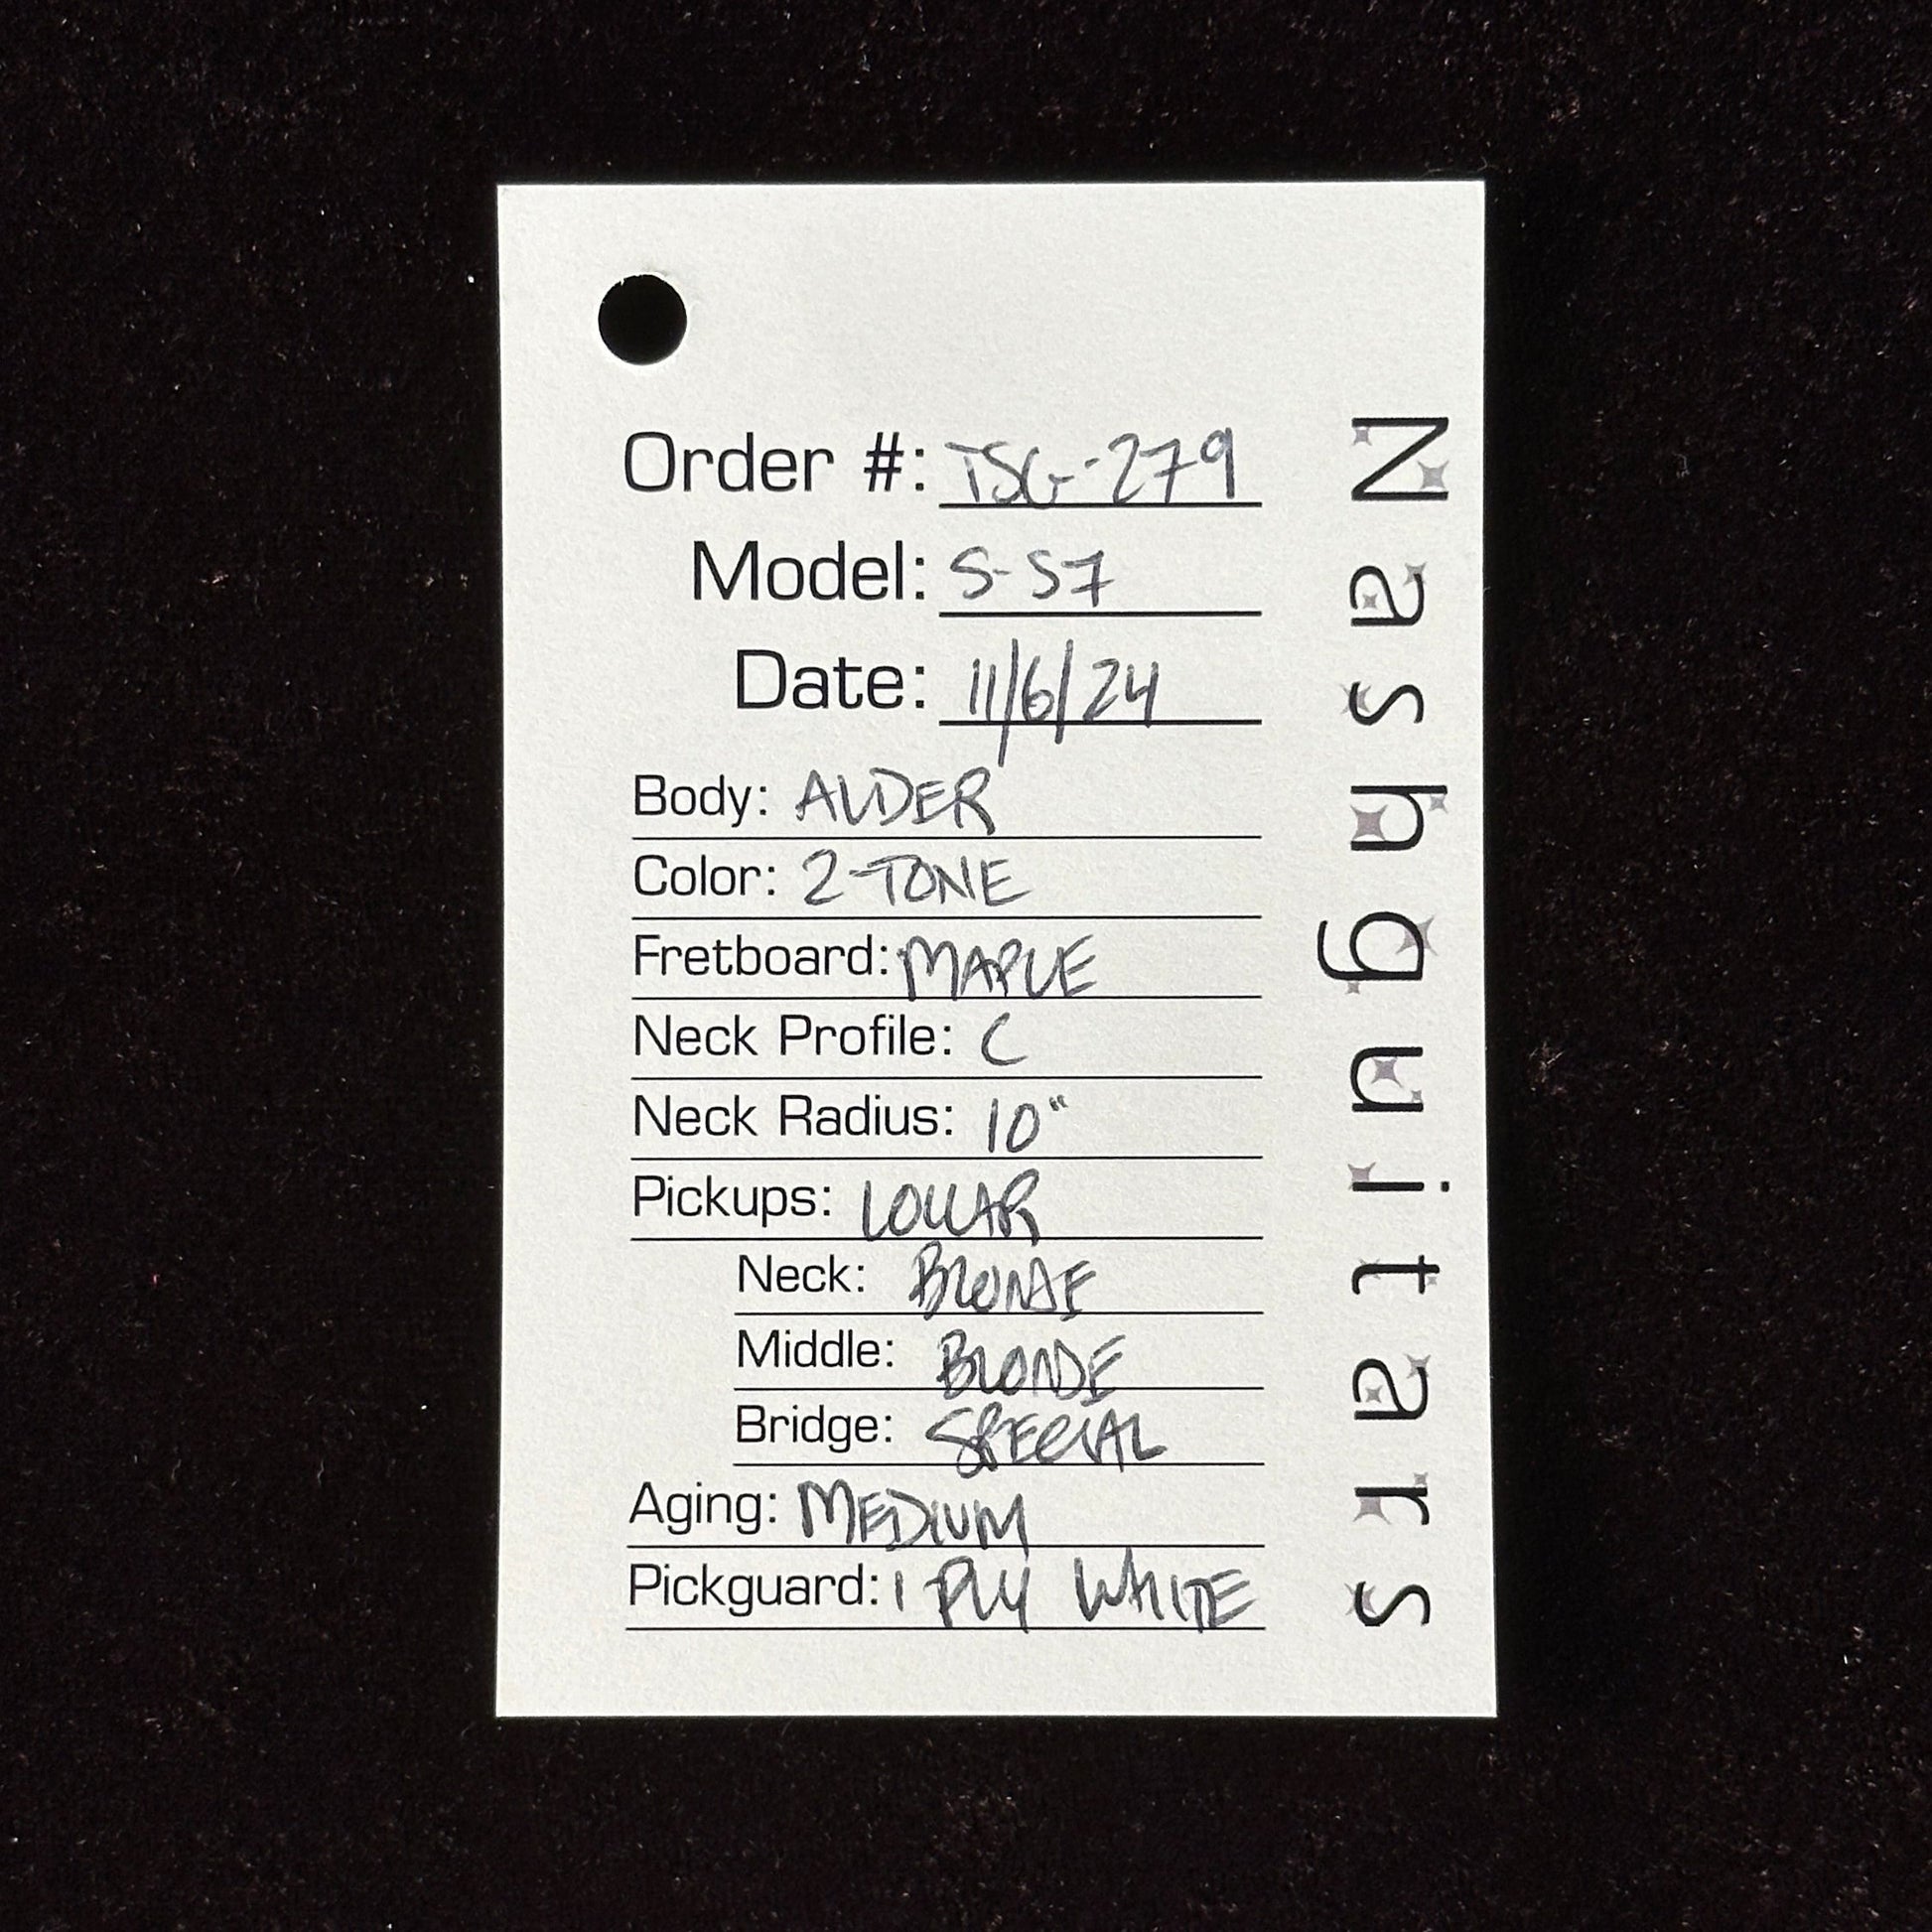 Order #: TSG-279
Model: S-57
Date: 11/6/24
Body: ALDER
Color: 2-TONE
Fretboard: MAPLE
Neck Profile: C
Neck Radius: 10"
Pickups: LOLLAR
Neck: BLONDE
Middle: BLONDE
Bridge: SPECIAL
Aging: MEDIUM
Pickguard: 1 PLY WHITE
Nashguitars